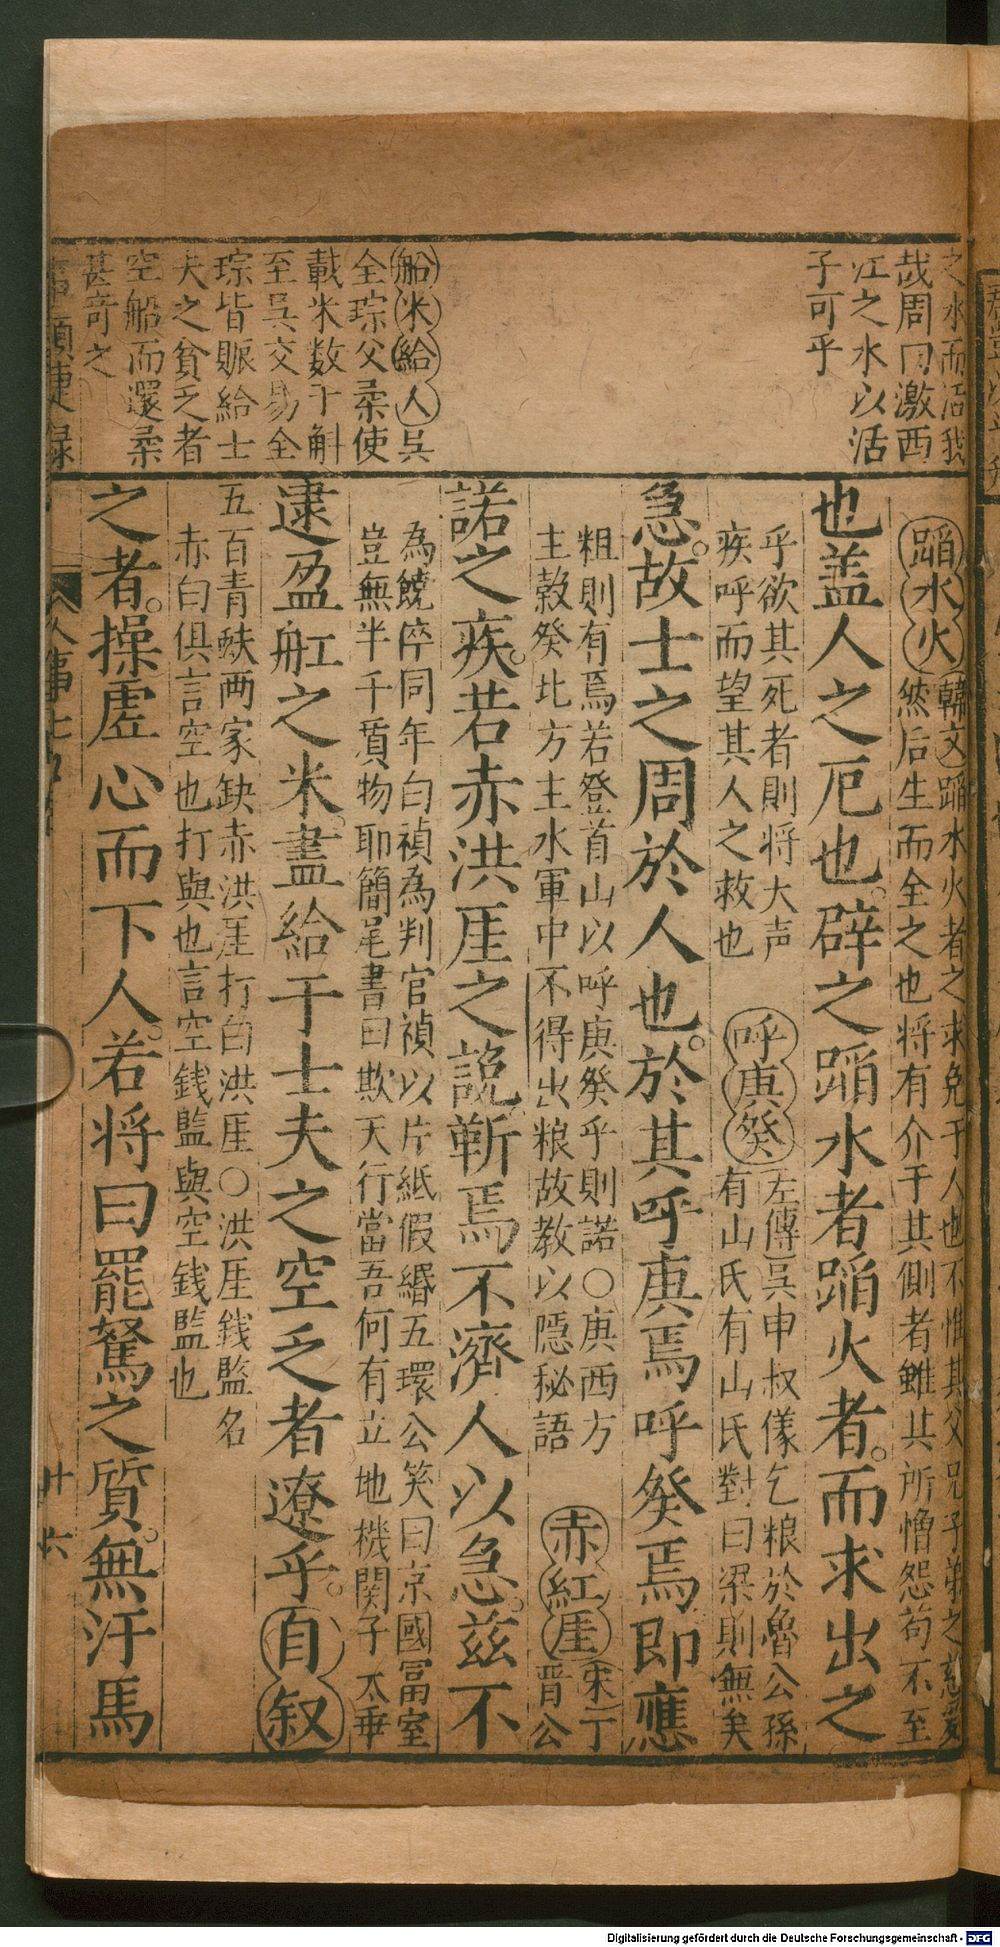 之水而活我
哉周曰激西
江之水以活
子可乎
船米給人吳
全琮父柔使
載米数千斛
至吳交易全
琮皆賑給士
夫之貧乏者
空船而還柔
甚奇之
蹈水火韓文蹈水火者之求免于人也不惟其父兄子弟之慈愛
然后生而全之也将有介于其側者雖其所憎怨苟不至
也盖人之厄也辟之蹈水者蹈火者而求出之
乎欲其死者則将大声
疾呼而望其人之救也
呼庚癸左傳吳申叔儀乞粮於魯公孫
有山氏有山氏對曰梁則無矣
急故士之周於人也於其呼庚焉呼癸焉即應
粗則有焉若登首山以呼庚癸乎則諾○庚西方
主穀癸北方主水軍中不得出粮故教以隠秘語
赤紅厓宋丁
晋公
諾之疾若赤洪厓之說靳焉不濟人以急兹不
為饒倅同年白禎為判官禎以片紙假緡五環公笑曰京國冨室
豈無半千質物耶簡尾書曰欺天行當吾何有立地機関子太垂
逮盈舡之米盡給于士夫之空乏者遼乎自叙
五百青蚨两家缺赤洪厓打白洪厓○洪厓銭監名
赤白俱言空也打與也言空銭監與空銭監也
之者操虗心而下人若将曰罷駑之質無汗馬
事類捷録
人事七
廿六
Digitalisierung gefördert durch die Deutsche Forschungsgemeinschaft - DFG